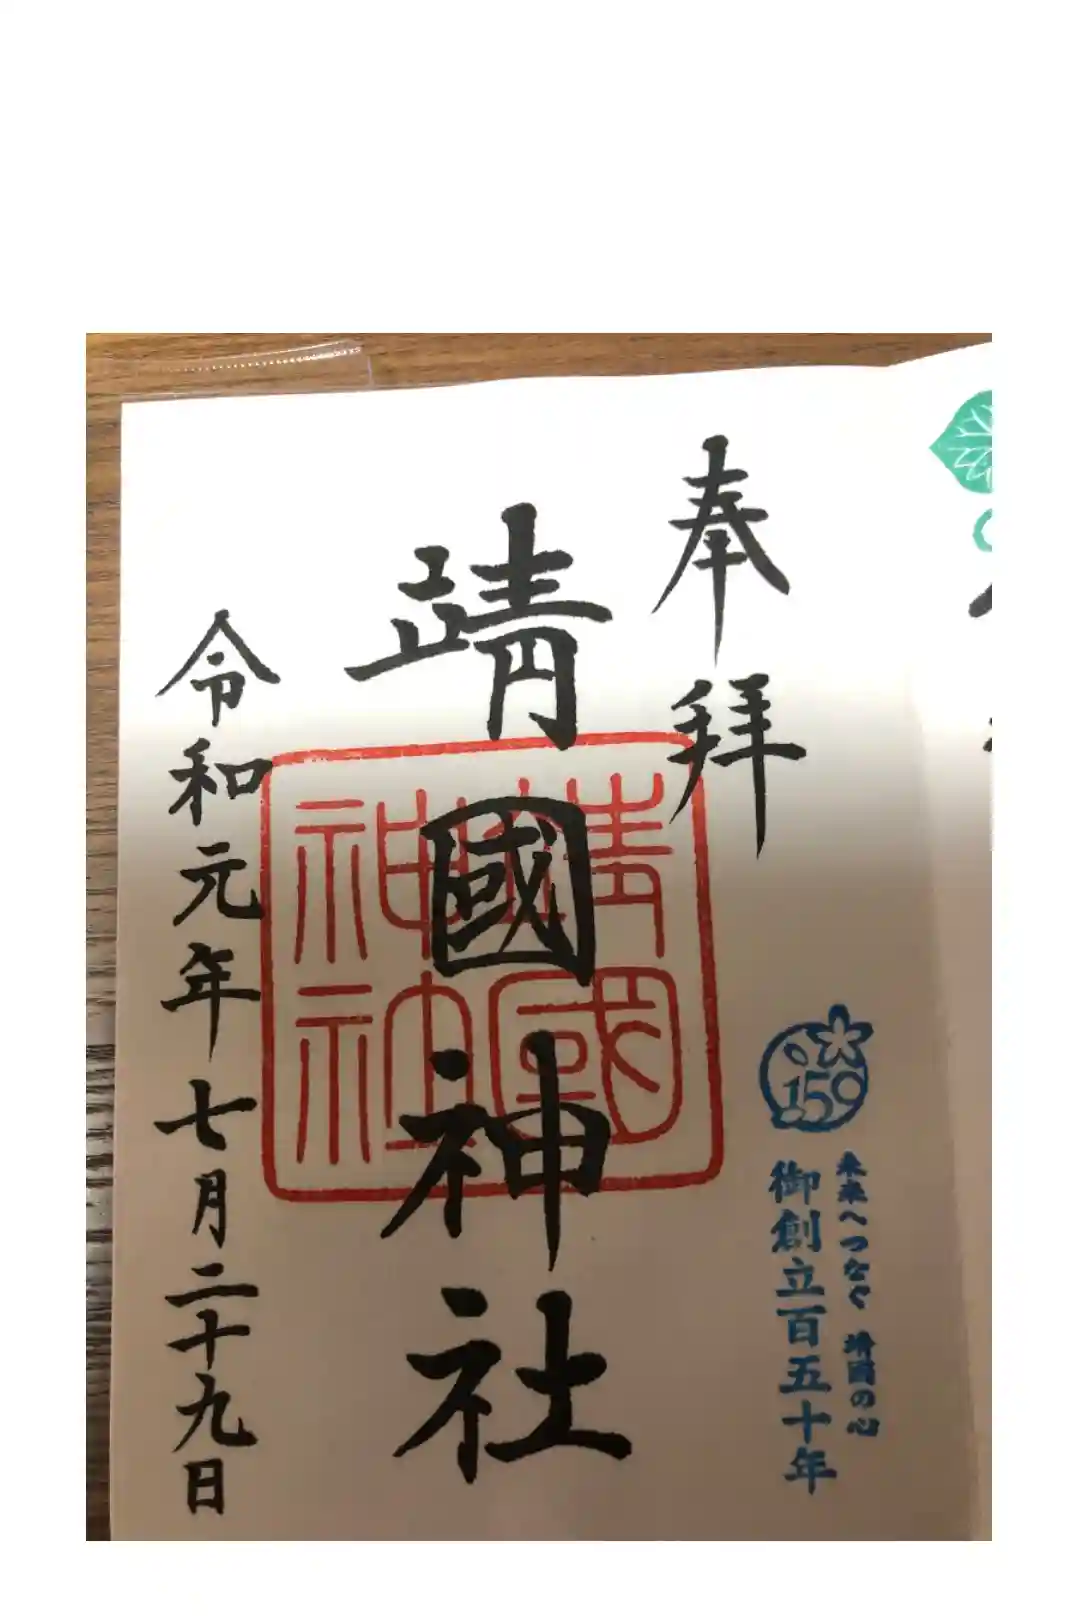 奉拝
靖國神社
靖國神社
令和元年七月二十九日
150
未来へつなぐ 靖國の心
御創立百五十年